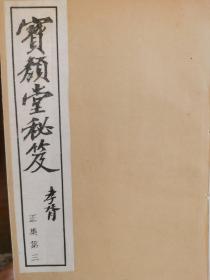 寳顏堂秘笈
孝胥
正集第三